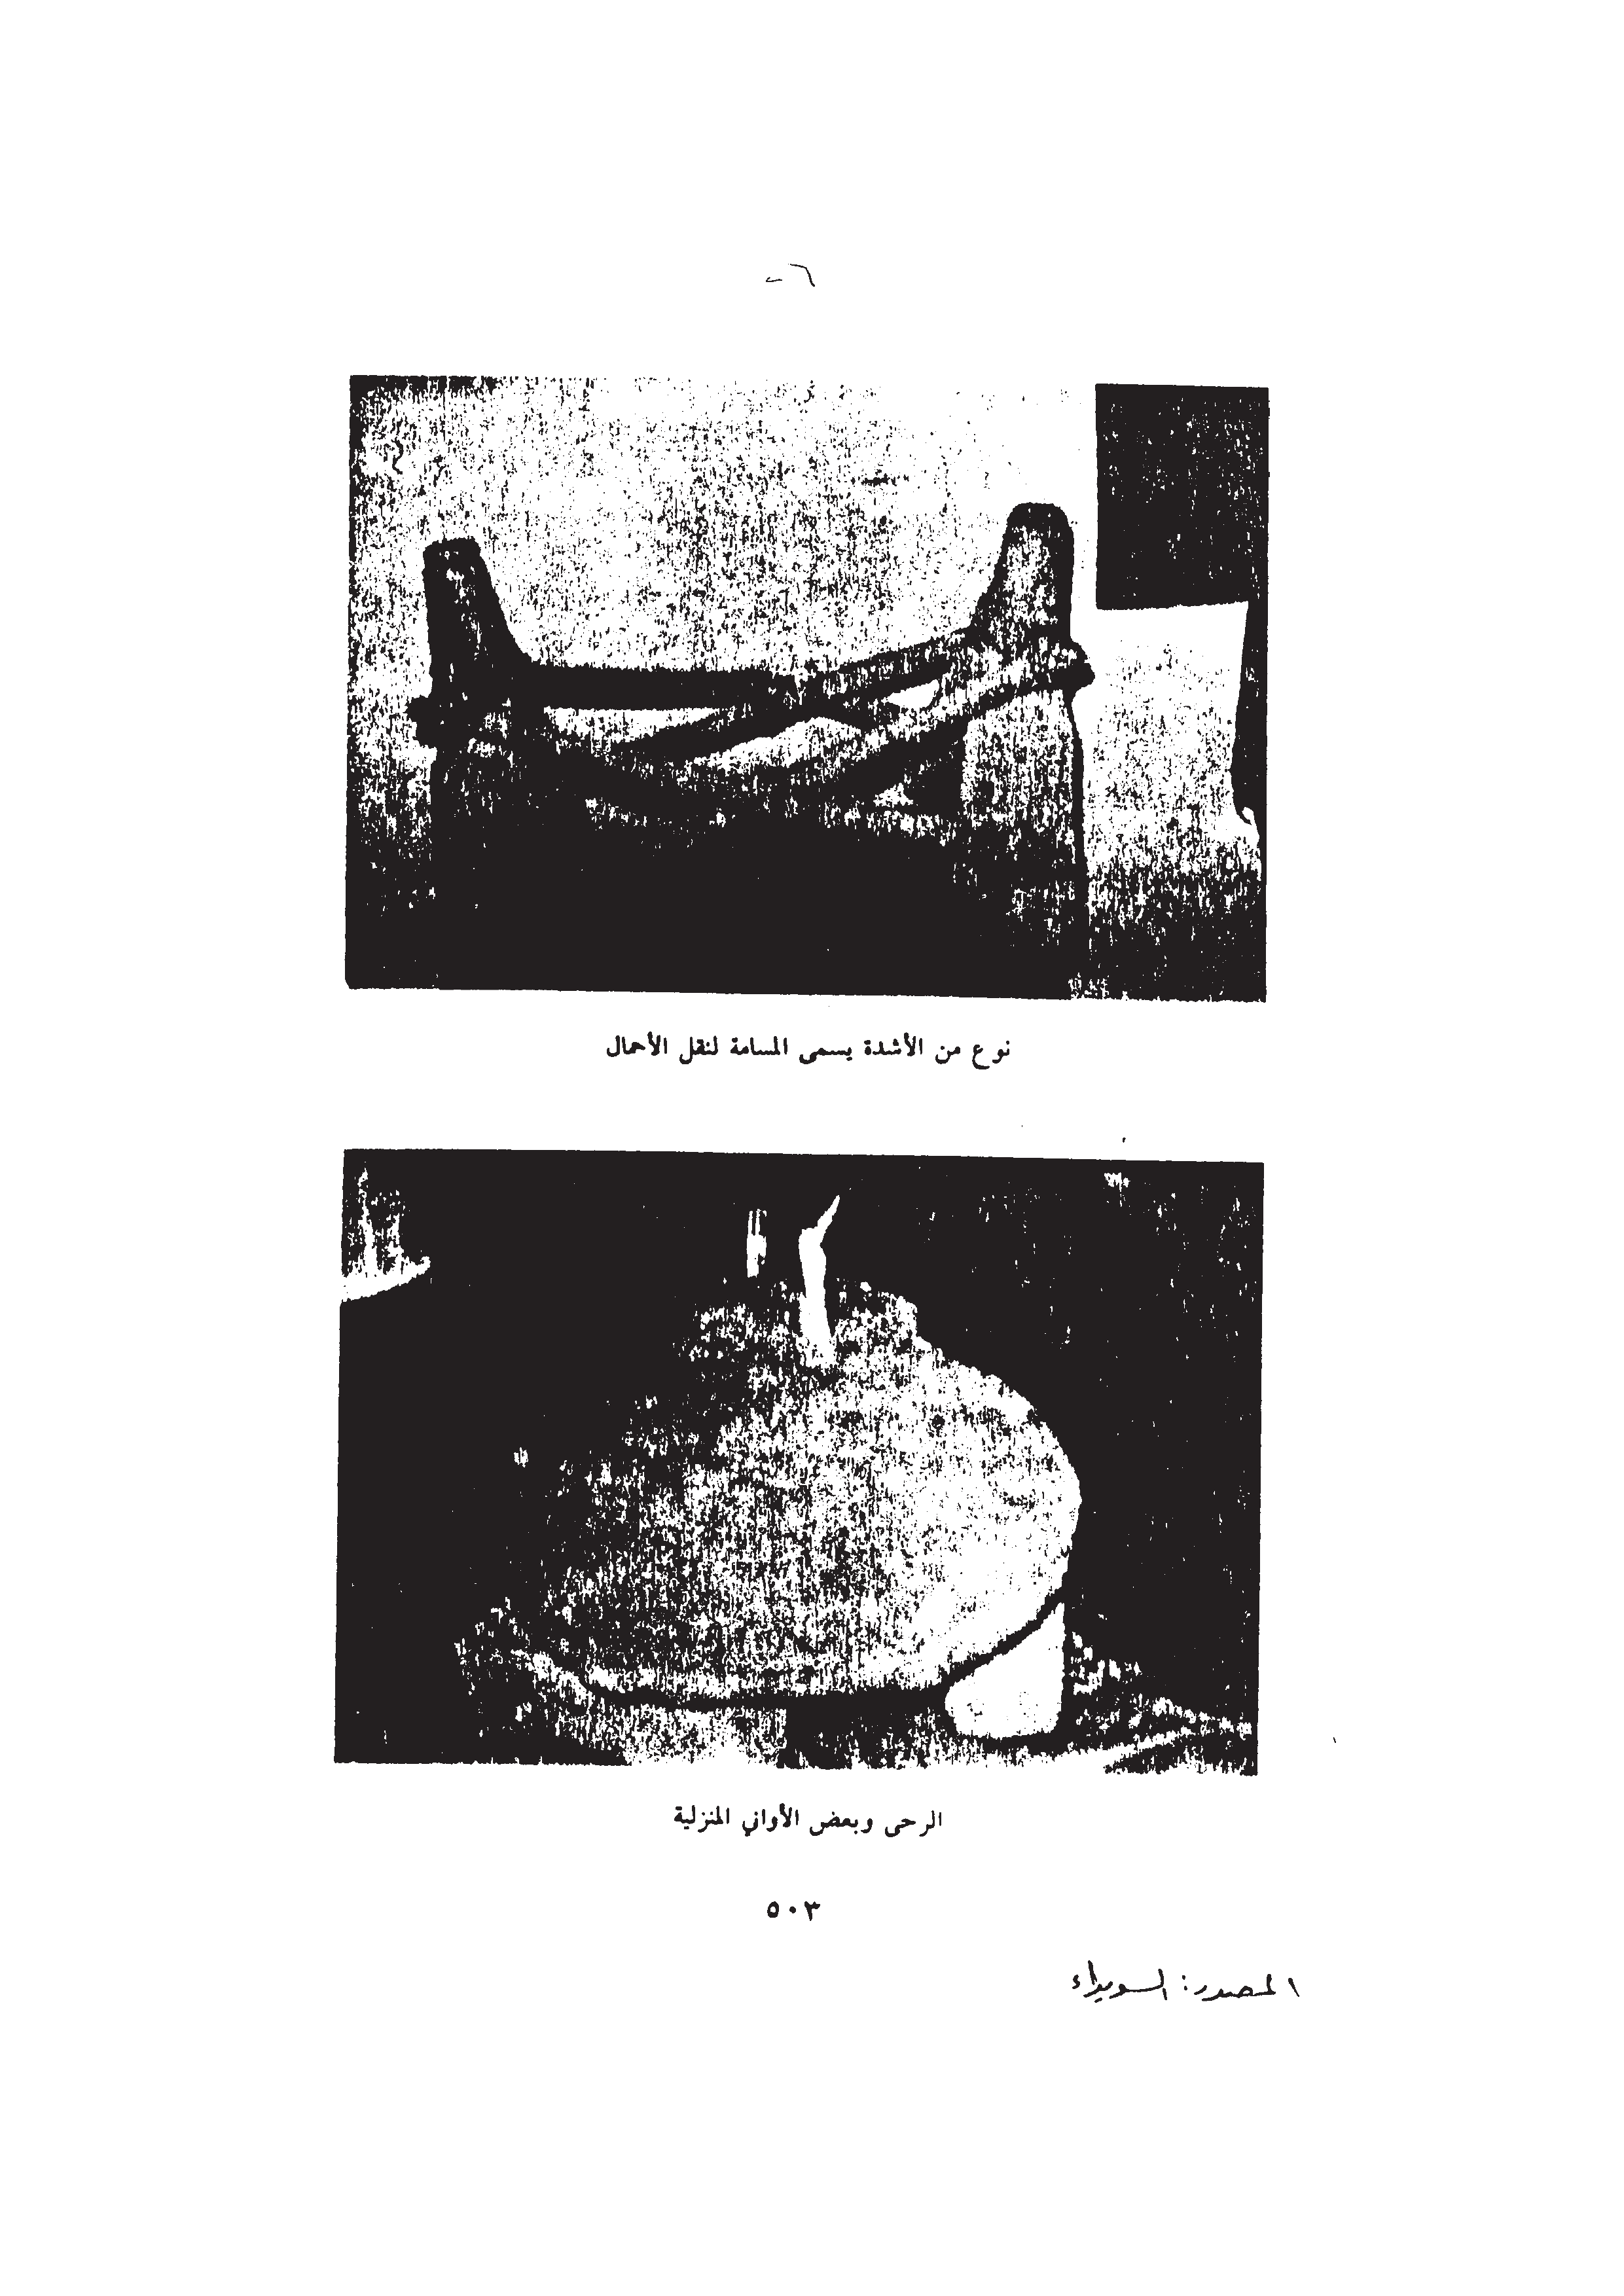 ٦-
نوع من الأشدة يسمى المسامة لنقل الأحمال
الرحى وبعض الأواني المنزلية
٥٠٣
المصدر: السويداء